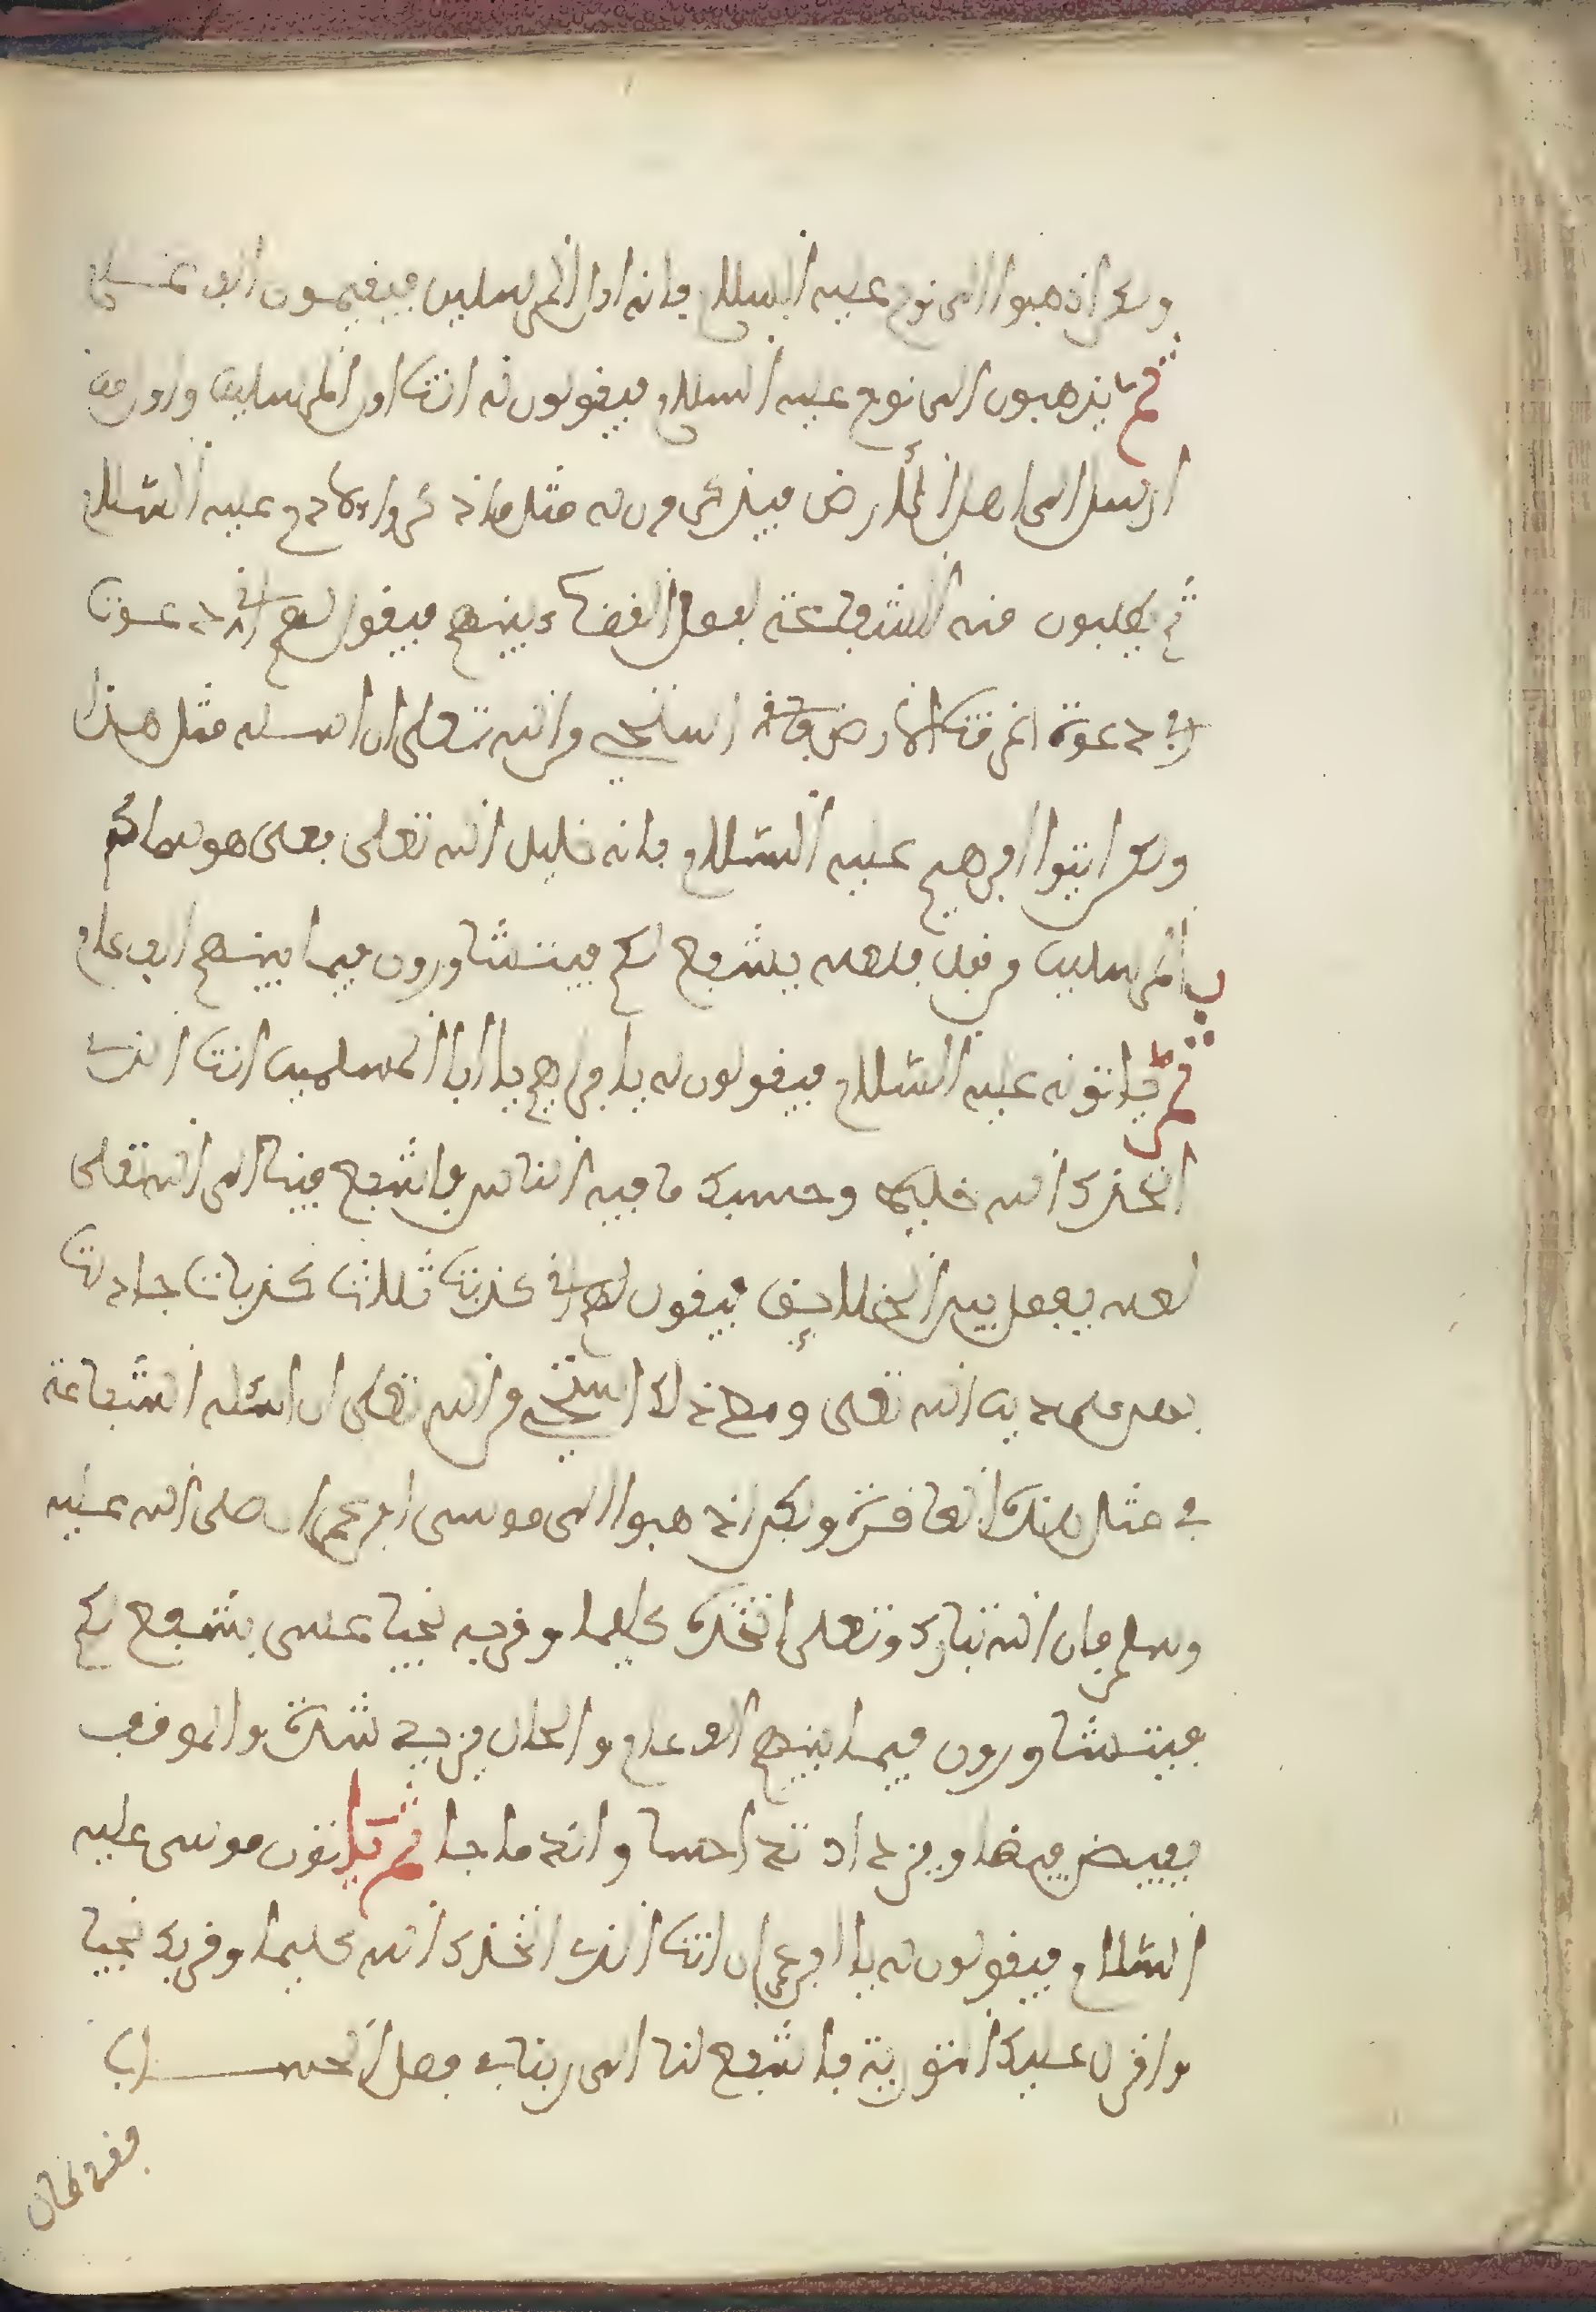 ولكن اذهبوا الى نوح عليه السلام فانه اول المرسلين فيقيمون الف عام
ثم يذهبون الى نوح عليه السلام فيقولون له انت اول المرسلين واول من
ارسل الى اهل الأرض فيذكرون له مثل ما ذكروا لادم عليه السلام
ثم يطلبون منه الشفاعة لفصل القضاء بينهم فيقول لهم اني دعوت
دعوة اغرقت الارض استحي من الله تعلى ان اسـله مثل هذا
ولكن ايتوا ابرهيم عليه السلام فانه خليل الله تعلى فعلى هو سماكم
المسلمين من قبل فلعله يشفع لكم فيتشاورون فيما بينهم الف عام
ثم ياتونه عليه السلام فيقولون له يا ابرهيم يا ابا المسلمين انت الذي
اتخذك الله خليلا وحسبك ما فيه الناس فاشفع فينا الى الله تعلى
لعله يفصل بين الخلايق فيقول لهم اني كذبت ثلاث كذبات جادلت
بهن على دين الله تعلى ومع ذلك استحي من الله تعلى ان اسئله الشفاعة
في مثل هذا ولكن اذهبوا الى موسى ابن عمران صلى الله عليه
وسلم فان الله تبارك وتعلى اتخذه كليما وقربه نجيا عسى يشفع لكم
فيتشاورون فيما بينهم الف عام والحال يزيد شدة والموقف
يضيق ويزداد
ثم ياتون موسى عليه
السلام فيقولون له يا ابن عمران انت الذي اتخذك الله كليما وقربك نجيا
وانزل عليك التورية فاشفع لنا الى ربنا في فصل الحساب
فقد طال